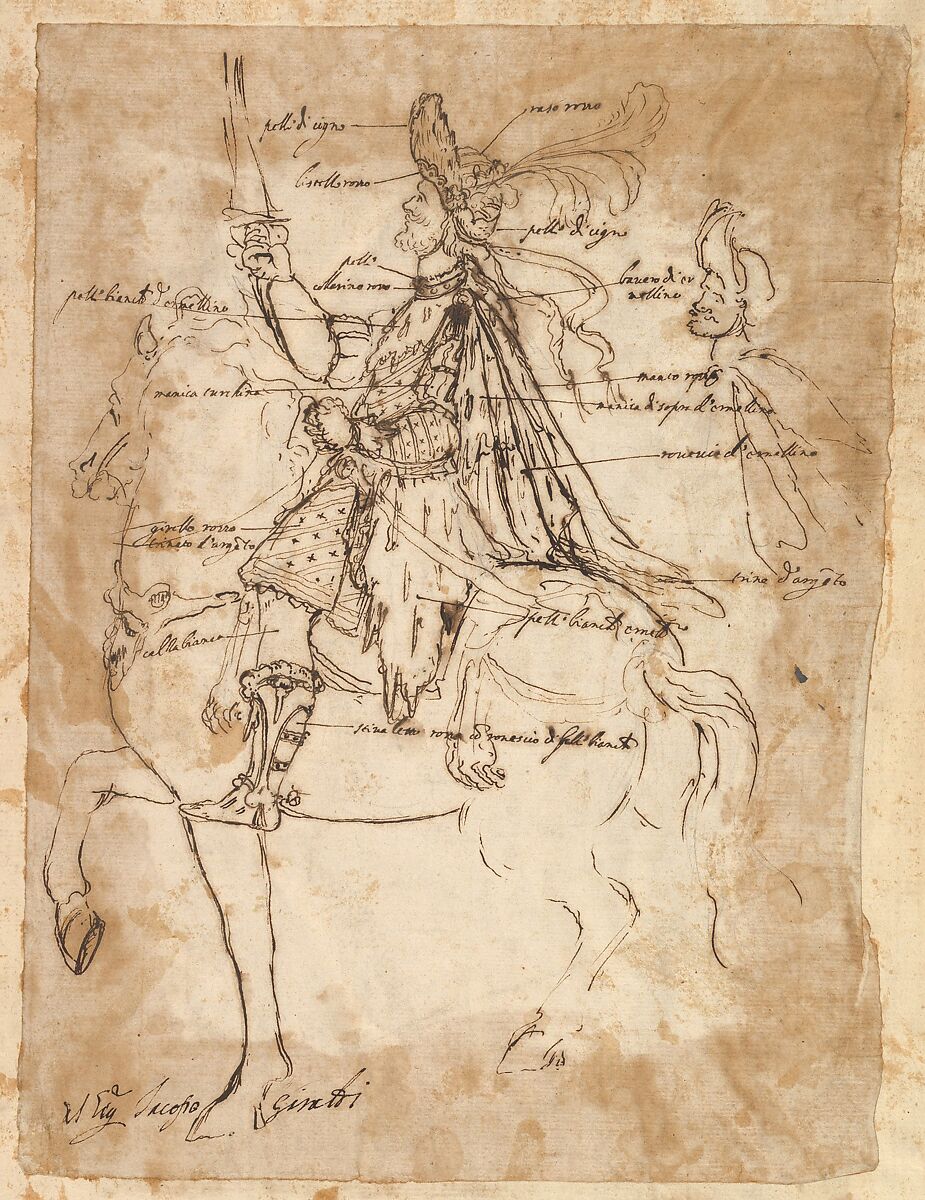 pelle di cigno
raso rosso
listello rosso
pelle di cigno
pelle
colarino rosso
bavero di er
mellino
pelle bianca d'ermellino
manto rosso
manica turchina
manica di sopra d'ermellino
rovescio d'ermellino
girello rosso
trinato d'argēto
trina d'argēto
pelle bianca
calza bianca
stivaletto rosso co rovescio di pelle bianca
Il Sig Jacopo Giraldi